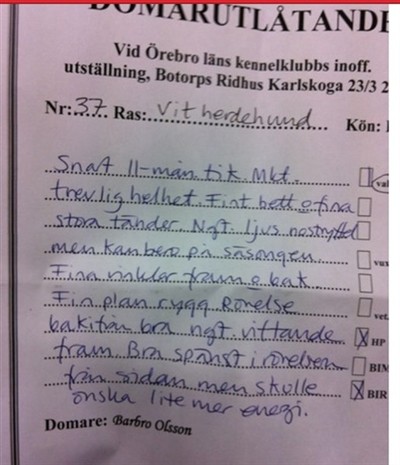 DOMARUTLÅTANDE
Vid Örebro läns kennelklubbs inoff.
utställning, Botorps Ridhus Karlskoga 23/3 2
Nr: 37 Ras: Vit herdehund Kön:
Snart 11-mån tik. Mkt.
trevlig helhet. Fint bett o fina
stora tänder. Ngt. ljus nostryffel
men kan bero på säsongen.
Fina vinklar fram o bak.
Fin plan rygg. Rörelse
bakifrån bra ngt. vittande
fram. Bra spänst i rörelsen
från sidan men skulle
önska lite mer energi.
val
vux
vet.
HP
BIM
BIR
Domare: Barbro Olsson